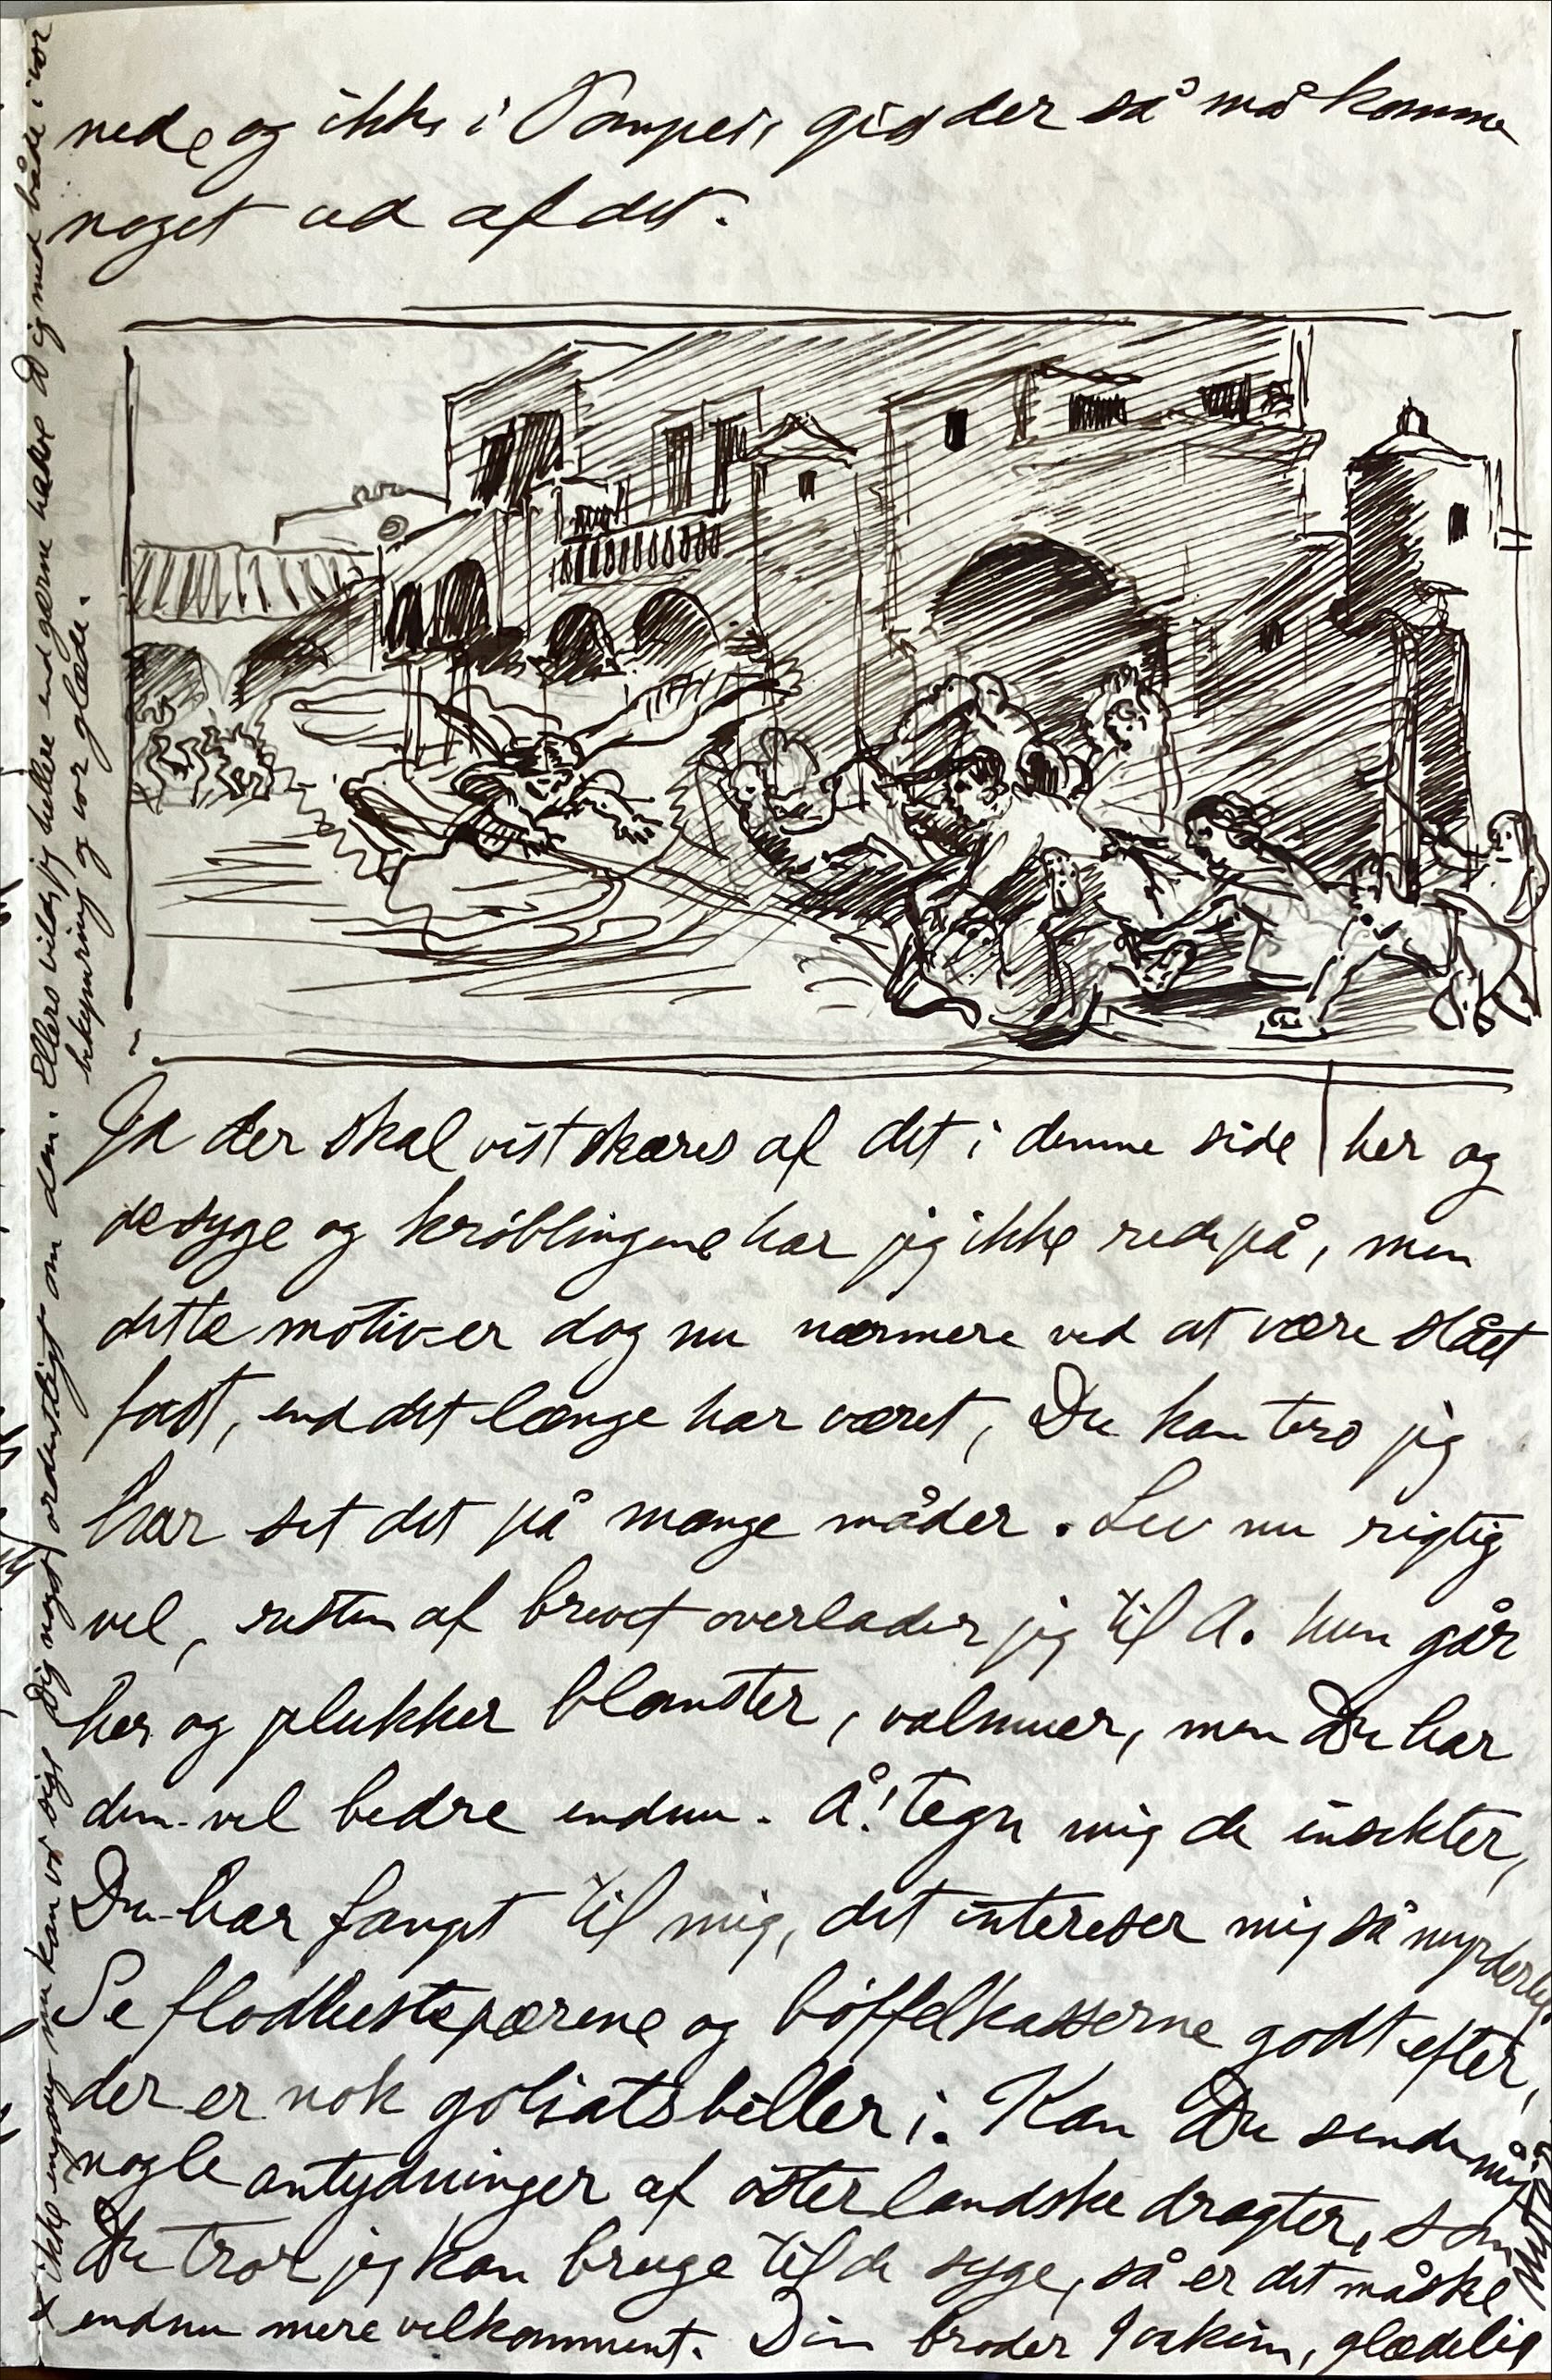 nede og ikke i Pompei, gid der så må komme
noget ud af det.
Ja der skal vist skæres af det i denne side | her og
de syge og krøblingene har jeg ikke rede på, men
dette motiv er dog nu nærmere ved at være slået
fast, end det længe har været, Du kan tro jeg
har set det på mange måder. Lev nu rigtig
vel, resten af brevet overlader jeg til A. hun går
her og plukker blomster, valmuer, men Du har
dem vel bedre endnu. Å! tegn mig de insekter,
Du har fanget til mig, det intereser mig så myrderligt
Se flodhestepærene og bøffelkasserne godt efter,
der er nok goliatsbiller i. Kan Du sende mig
nogle antydninger af østerlandske dragter, som
Du tror jeg kan bruge til de syge, så er det måske
endnu mere velkomment. Din broder Joakim, glædelig
x ikke engang nu kan vi sige Dig noget ordentligt om dem. Ellers vilde jeg hellere end gærne have Dig med både i vor
bekymring og vor glæde.